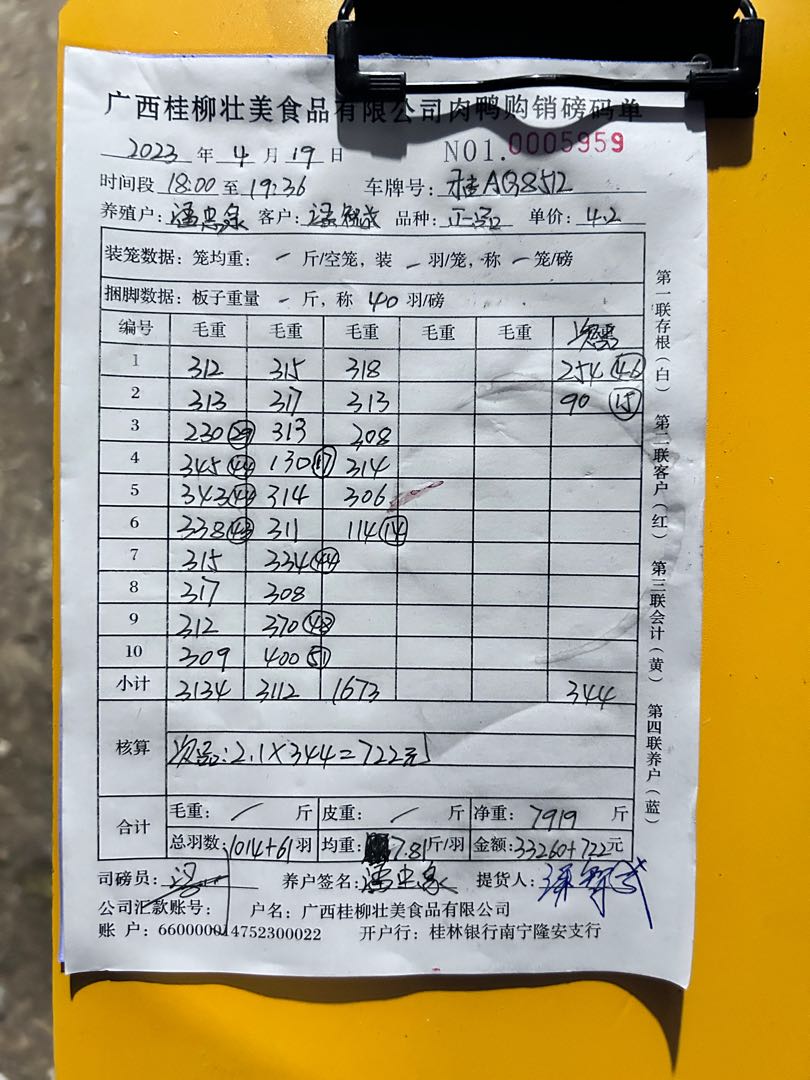 广西桂柳壮美食品有限公司肉鸭购销磅码单
2023 年 4 月 19 日 NO1.0005959
时间段 18:00 至 19:36 车牌号: 桂AQ8512
养殖户: 客户: 品种: 正品 单价: 4.2
装笼数据: 笼均重: — 斤/空笼, 装 — 羽/笼, 称 — 笼/磅
捆脚数据: 板子重量 — 斤, 称 40 羽/磅
编号 毛重 毛重 毛重 毛重 毛重
1 312 315 318 254 46
2 313 317 313 90 15
3 230 29 313 308
4 345 44 130 17 314
5 343 44 314 306
6 338 43 311 114 14
7 315 334 44
8 317 308
9 312 370 48
10 309 400 51
小计 3134 3112 1673 344
核算 次品:2.1×344=722元
合计 毛重: / 斤 皮重: / 斤 净重: 7919 斤
总羽数: 1014+61 羽 均重: 7.81 斤/羽 金额: 33260+722 元
司磅员: 养户签名: 提货人:
公司汇款账号: 户名: 广西桂柳壮美食品有限公司
账 户: 660000014752300022 开户行: 桂林银行南宁隆安支行
第一联存根(白) 第二联客户(红) 第三联会计(黄) 第四联养户(蓝)